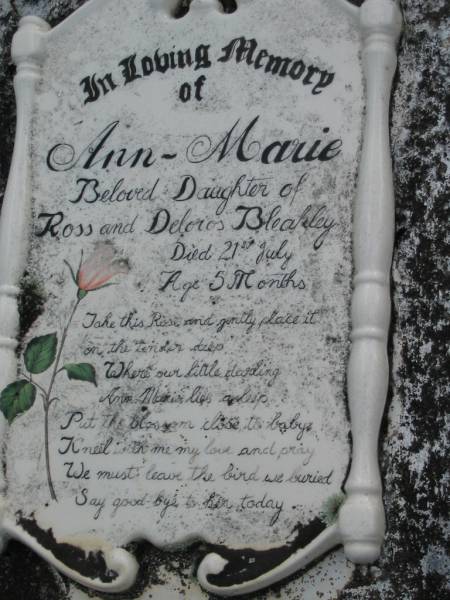 In Loving Memory
of
Ann-Marie
Beloved Daughter of
Ross and Delores Bleakley
Died 21st July
Age 5 Months
Take this Rose and gently place it
on the tender deep
Where our little darling
Ann Marie lies asleep
Put the blossom close to baby
Kneel with me my love and pray
We must leave the bird we buried
Say good-bye to her today